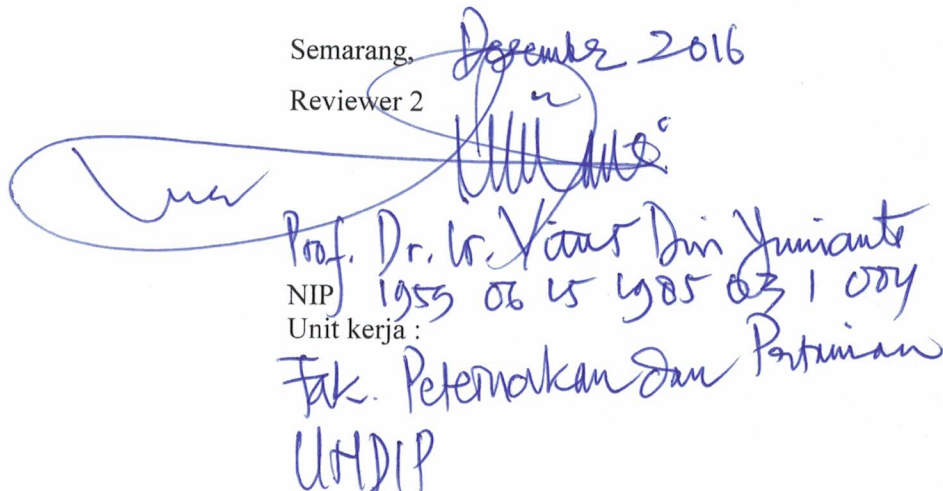 Semarang, Desember 2016
Reviewer 2
Prof. Dr. Ir. Dwi Yunianto
NIP 1959 06 15 1985 03 1 004
Unit kerja :
Fak. Peternakan dan Pertanian
UNDIP